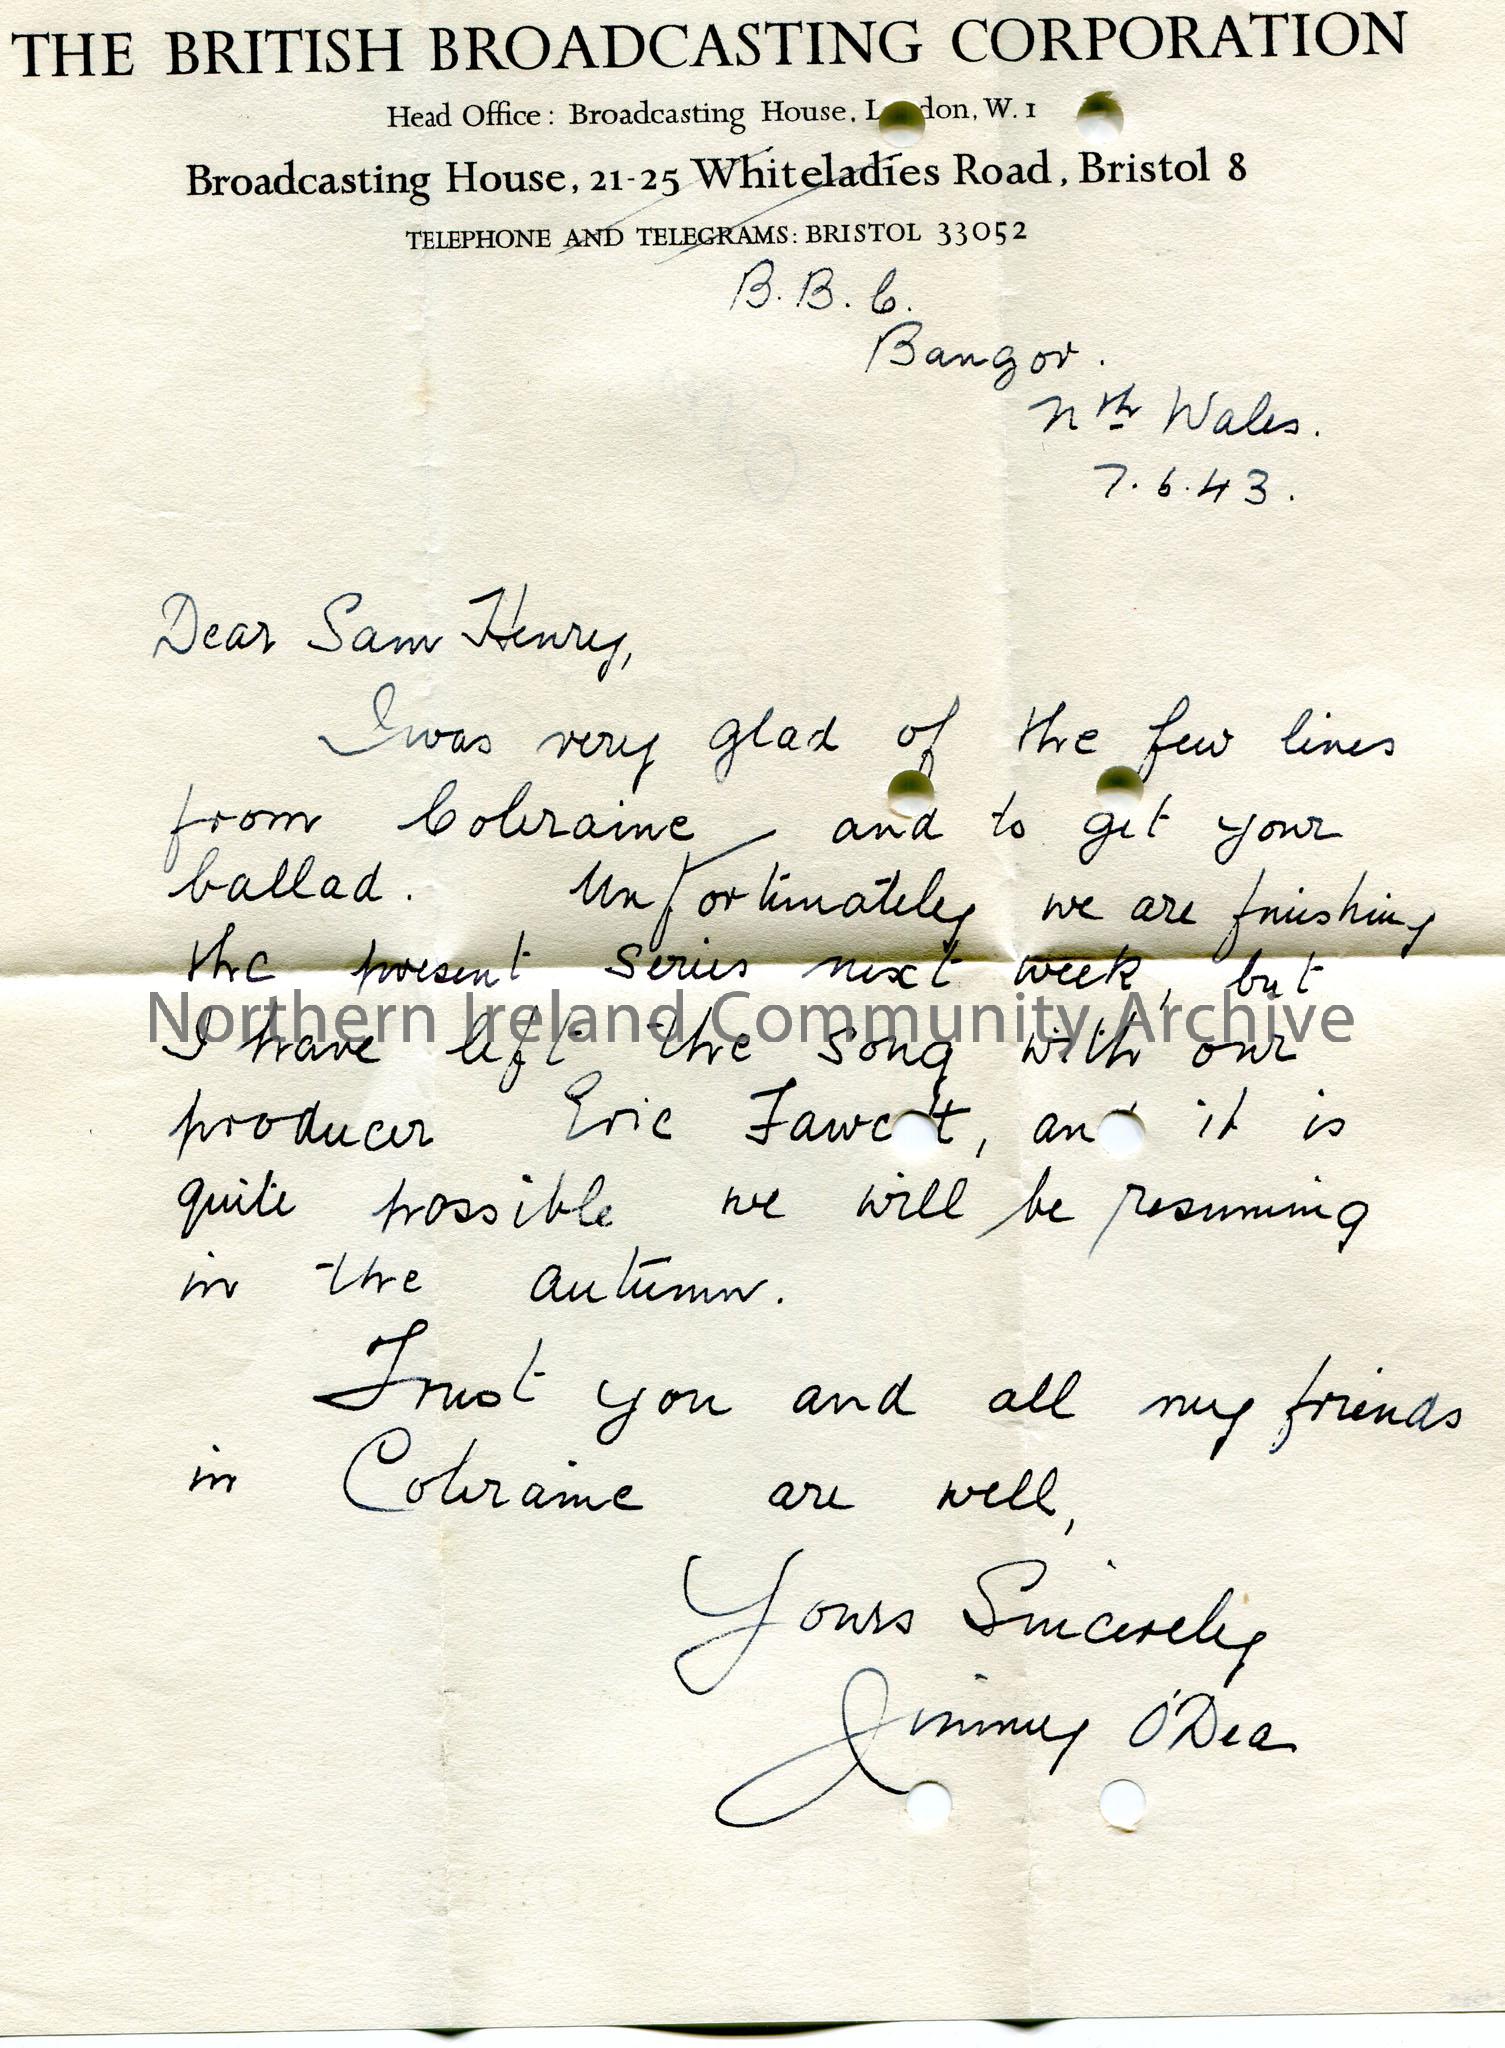 THE BRITISH BROADCASTING CORPORATION
Head Office: Broadcasting House, London, W. 1
Broadcasting House, 21-25 Whiteladies Road, Bristol 8
TELEPHONE AND TELEGRAMS: BRISTOL 33052
B. B. C.
Bangor.
Nth Wales.
7. 6. 43.
Dear Sam Henry,
I was very glad of the few lines
from Coleraine, and to get your
ballad. Unfortunately we are finishing
the present series next week, but
Northern Ireland Community Archive
I have left the song with our
producer Eric Fawcett, and it is
quite possible we will be resuming
in the autumn.
Trust you and all my friends
in Coleraine are well,
Yours Sincerely
Jimmy O'Dea